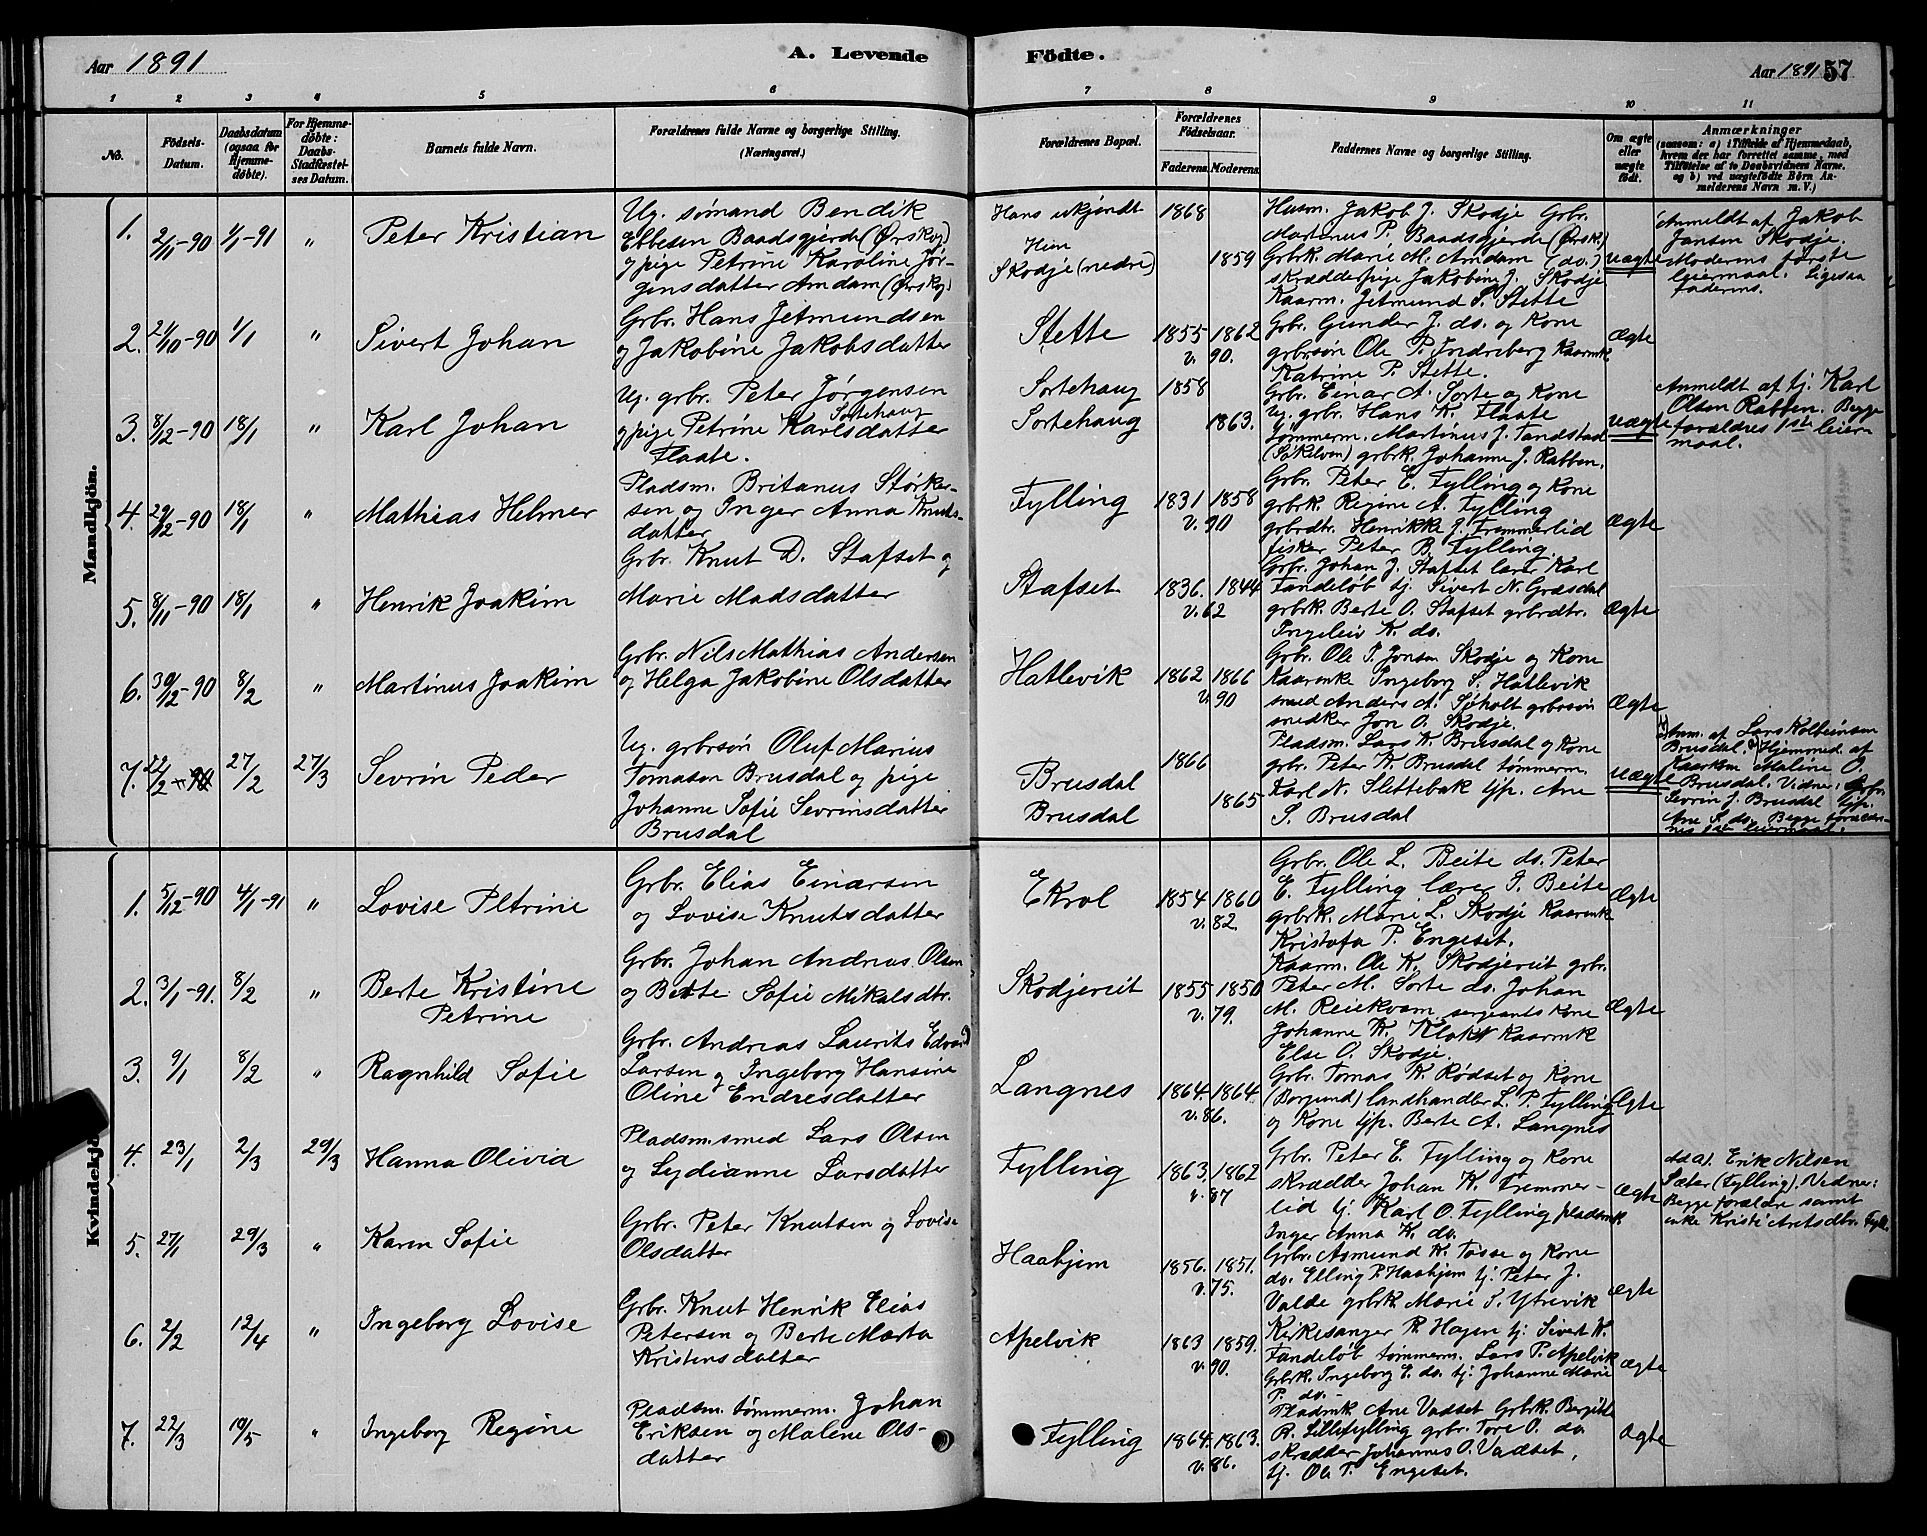 Aar 1891
A. Levende Födte.
Aar 1891 57
1 2 3 4 5 6 7 8 9 10 11
No.
Födsels-Datum.
Daabsdatum (ogsaa for Hjemme-døbte).
For Hjemme-døbte: Daabs-Stadfæstel-ses Datum.
Barnets fulde Navn.
Forældrenes fulde Navne og borgerlige Stilling. (Næringsvei.)
Forældrenes Bopæl.
Forældrenes Födselsaar.
Faderens Moderens
Faddernes Navne og borgerlige Stilling.
Om ægte eller uægte födt.
Anmærkninger
(saasom: a) i Tilfælde af Hjemmedaab,
hvem der har forrettet samme, med
Tilföielse af to Daabsvidners Navne.
og b) ved uægtefödte Börn An-
melderens Navn m. V.)
Mandkjön.
1. 2/11-90 1/1-91 " Peter Kristian
Ug. sømand Bendik
Ebbesen Baadsgjerde (Ørskog)
og pige Petrine Karoline Jør-
ginsdatter Amdam (Ørskog)
Hans ukjendt 1868
Hun
Skodje (nedre) 1859
Husm. Jakob J. Skodje Grbr.
Martinus P. Baadsgjerde (Ørsk.)
Grbrk. Marie M. Amdam (do.)
skrædderpige Jakobine J. Skodje
Kaarm. Jetmund S. Stette
uægte
Anmeldt af Jakob
Jansen Skodje.
Moderens første
leiermaal. Ligesaa
faderens.
2. 21/10-90 1/1 " Sivert Johan
Grbr. Hans Jetmundsen
og Jakobine Jakobsdatter
Stette 1855 1862
v. 90.
Grbr. Gunder J. do. og Kone
grbrsøn Ole P. Indreberg Kaarmk
Katrine P. Stette.
Ægte
3. 8/12-90 18/1 " Karl Johan
Ug. grbr. Peter Jørgensen
Sortehaug
og pige Petrine Karlsdatter
Flaate.
Sortehaug 1858
Sortehaug 1863.
Grbr. Einar A. Sorte og Kone
Ug. grbr. Hans K. Flaate
Tømmerm. Martinus J. Tandstad
(Søkelven) grbrk. Johanne J. Rabben.
uægte
Anmeldt af tj. Karl
Olsen Rabben. Begge
forældres 1ste leier-
maal.
4. 29/12-90 18/1 " Mathias Helmer
Pladsm. Britanus Størker-
sen og Inger Anna Knuts-
datter
Fylling 1831 1858
v. 90
Grbr. Peter E. Fylling og Kone
grbrk. Regine A. Fylling
grbrdtr. Henrikke J. Fremmerlid
fisker Peter B. Fylling.
Ægte
5. 8/11-90 18/1 " Henrik Joakim
Grbr. Knut D. Stafset og
Marie Madsdatter
Stafset 1836. 1844
v. 62
Grbr. Johan J. Stafset lært Karl
Fandeløb tj. Sivert N. Græsdal
grbrk. Berte O. Stafset grbrdtr.
Ingeleiv K. do.
Ægte
6. 30/12-90 8/2 " Martinus Joakim
Grbr. Nils Mathias Andersen
og Helga Jakobine Olsdatter
Hatlevik 1862 1866
v. 90
Grbr. Ole T. Jonsen Skodje og Kone
Kaarmke Ingeborg S. Hatlevik
smed Anders A. Sjøholt grbrsøn
snedker Jon O. Skodje.
Ægte
7. 22/2 27/2 27/3 Sevrin Peder
Ug. grbrsøn Oluf Marius
Tomasen Brusdal og pige
Johanne Sofie Sevrinsdatter
Brusdal
Brusdal 1866
Brusdal 1865
Pladsm. Lars K. Brusdal og Kone
grbr. Peter K. Brusdal tømmerm.
Karl N. Slettebak tjp. Ane
S. Brusdal
uægte
Anm. af Lars Kolbeinsen
Brusdal. Hjemmed. af
Kaarkm Maline O.
Brusdal. Vidner: Grbr.
Sevrin J. Brusdal tjp.
Ane S. do. Begge forældre-
nes 1ste leiermaal.
Kvindekjön.
1. 5/12-90 4/1-91 " Lovise Petrine
Grbr. Elias Einarsen
og Lovise Knutsdatter
Ekrol 1854 1860
v. 82.
Grbr. Ole L. Beite do. Peter
E. Fylling lærer P. Beite
grbrk. Marie L. Skodje Kaarmk
Kristofa P. Engeset.
Ægte
2. 3/1-91. 8/2 " Berte Kristine
Petrine
Grbr. Johan Andreas Olsen
og Berte Sofie Mikalsdtr.
Skodjereit 1855 1850
v. 79.
Kaarm. Ole K. Skodjereit grbr.
Peter M. Sorte do. Johan
M. Reiekvam sergeants Kone
Johanne K. Klokk Kaarmk
Else O. Skodje.
Ægte
3. 9/1 8/2 " Ragnhild Sofie
Grbr. Andreas Laurits Edvard
Larsen og Ingeborg Hansine
Oline Endresdatter
Langnes 1864. 1864.
v. 86.
Grbr. Tomas K. Rødset og Kone
(Borgund) landhandler L. P. Fylling
og Kone tjp. Berte A. Langnes
Ægte
4. 23/1 2/3 29/3 Hanna Olivia
Pladsm. smed Lars Olsen
og Lydianne Larsdatter
Fylling 1863. 1862
v. 87
Grbr. Peter E. Fylling og Kone
skrædder Johan K. Fremmer-
lid tj. Karl O. Fylling pladsmk
Inger Anna K. do.
Ægte
ad a). Erik Nilsen
Sæter (Fylling). Vidner:
Begge forældre samt
enke Kristi Arntsdtr. Fyll.
5. 27/1 29/3 " Karen Sofie
Grbr. Peter Knutsen og Lovise
Olsdatter
Haahjem 1856. 1851.
v. 75.
Grbr. Asmund K. Tosse og Kone
do. Elling P. Haahjem tj. Peter J.
Valde grbrk. Marie S. Ytrevik
Ægte
6. 2/2 12/4 " Ingeborg Lovise
Grbr. Knut Henrik Elias
Petersen og Berte Marta
Kristensdatter
Apelvik 1863 1859.
v. 90.
Kirkesanger R. Hagen tj. Sivert K.
Fandeløb tømmerm. Lars P. Apelvik
Grbrk. Ingeborg E. do. tj. Johanne Marie
P. do.
Ægte
7. 22/3 19/5 " Ingeborg Regine
Pladsm. tømmerm. Johan
Eriksen og Malene Ols-
datter
Fylling 1864. 1863.
v. 86.
Pladsmk Ane Vadset Grbrk. Bergitte
R. Lillefylling grbr. Tore O. do
skrædder Johannes O. Vadset,
tj. Ole T. Engeset.
Ægte